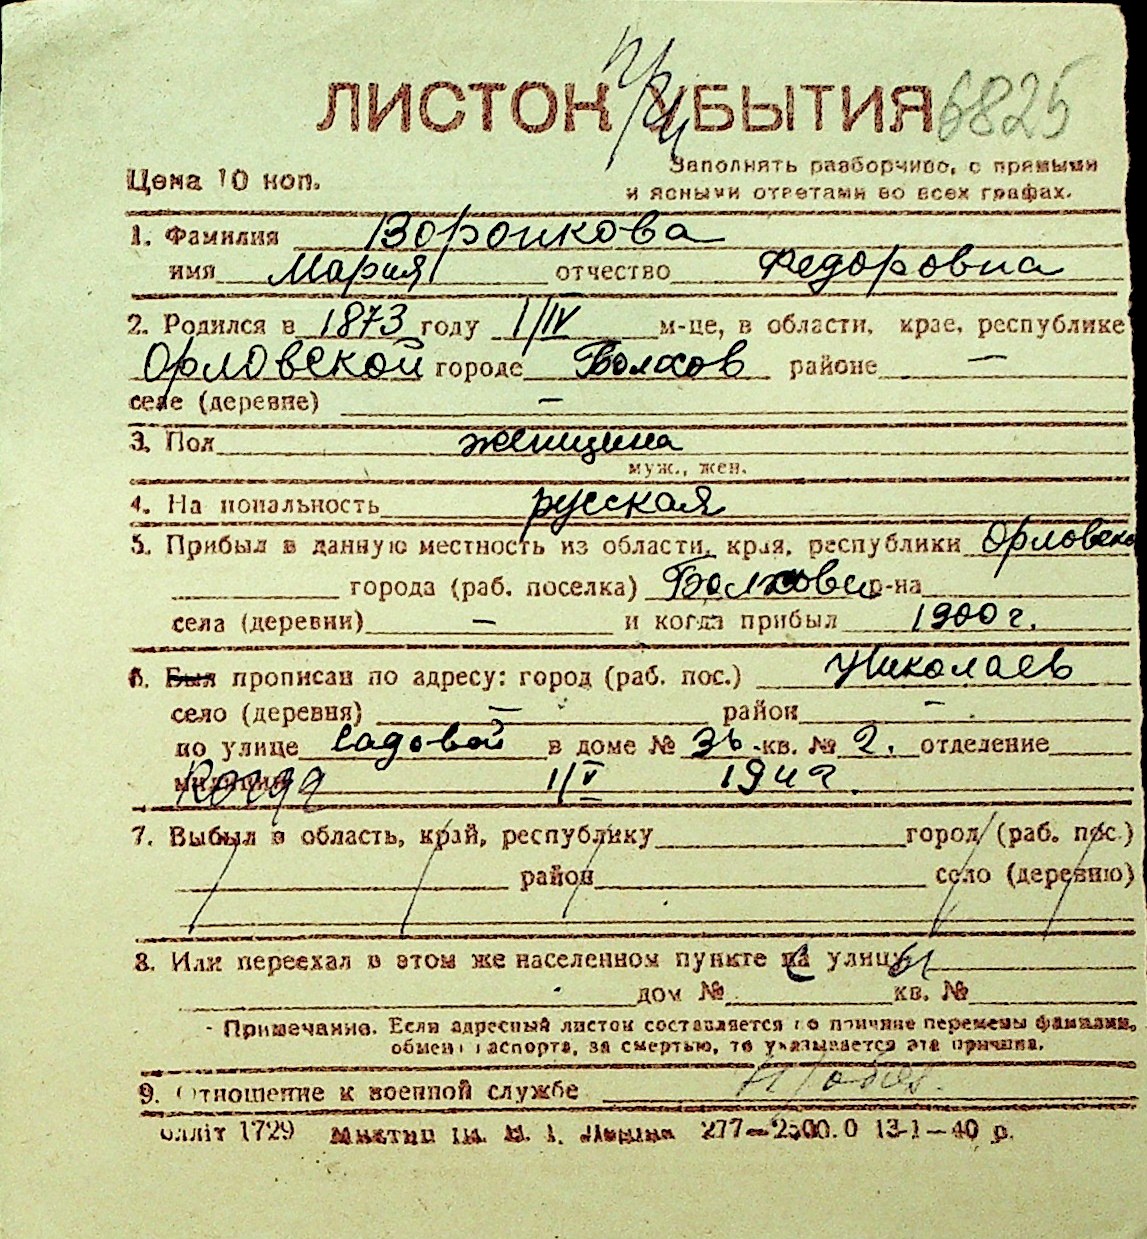 при
ЛИСТОК УБЫТИЯ 6825
Цена 10 коп.
Заполнять разборчиво, с прямыми
и ясными ответами во всех графах.
1. Фамилия Воронкова
имя Мария отчество Федоровна
2. Родился в 1873 году 1/IV м-це, в области, крае, республике
Орловской городе Болхов районе —
селе (деревне) —
3. Пол женщина
муж., жен.
4. Национальность русская
5. Прибыл в данную местность из области, края, республики Орловско
города (раб. поселка) Болхове р-на
села (деревни) — и когда прибыл 1900 г.
6. Был прописан по адресу: город (раб. пос.) Николаев
село (деревня) — район —
по улице Садовой в доме № 36 кв. № 2. отделение
милиции Когда 1/V
7. Выбыл в область, край, республику город (раб. пос.)
район село (деревню)
8. Или переехал в этом же населенном пункте на с улицы
дом № кв. №
Примечание. Если адресный листок составляется по причине перемены фамилии,
обмена паспорта, за смертью, то указывается эта причина.
9. Отношение к военной службе
олліт 1729 277—2500.0 13-1—40 р.